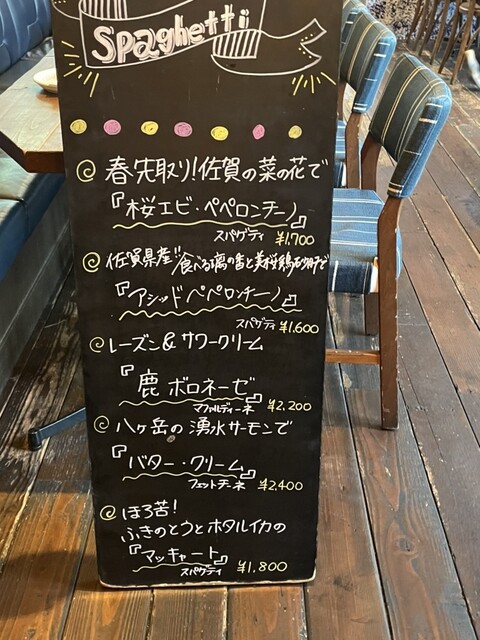 Spaghetti
春先取り!佐賀の菜の花で
『桜エビ・ペペロンチーノ』
スパゲティ ¥1,700
佐賀県産!!食べる
『アシッドペペロンチーノ』
スパゲティ ¥1,600
レーズン&サワークリーム
『鹿 ボロネーゼ』
マファルディーネ ¥2,200
八ヶ岳の湧水サーモンで
『バター・クリーム』
フェットチーネ ¥2,400
ほろ苦!
ふきのとうとホタルイカの
『マッキャート』
スパゲティ ¥1,800